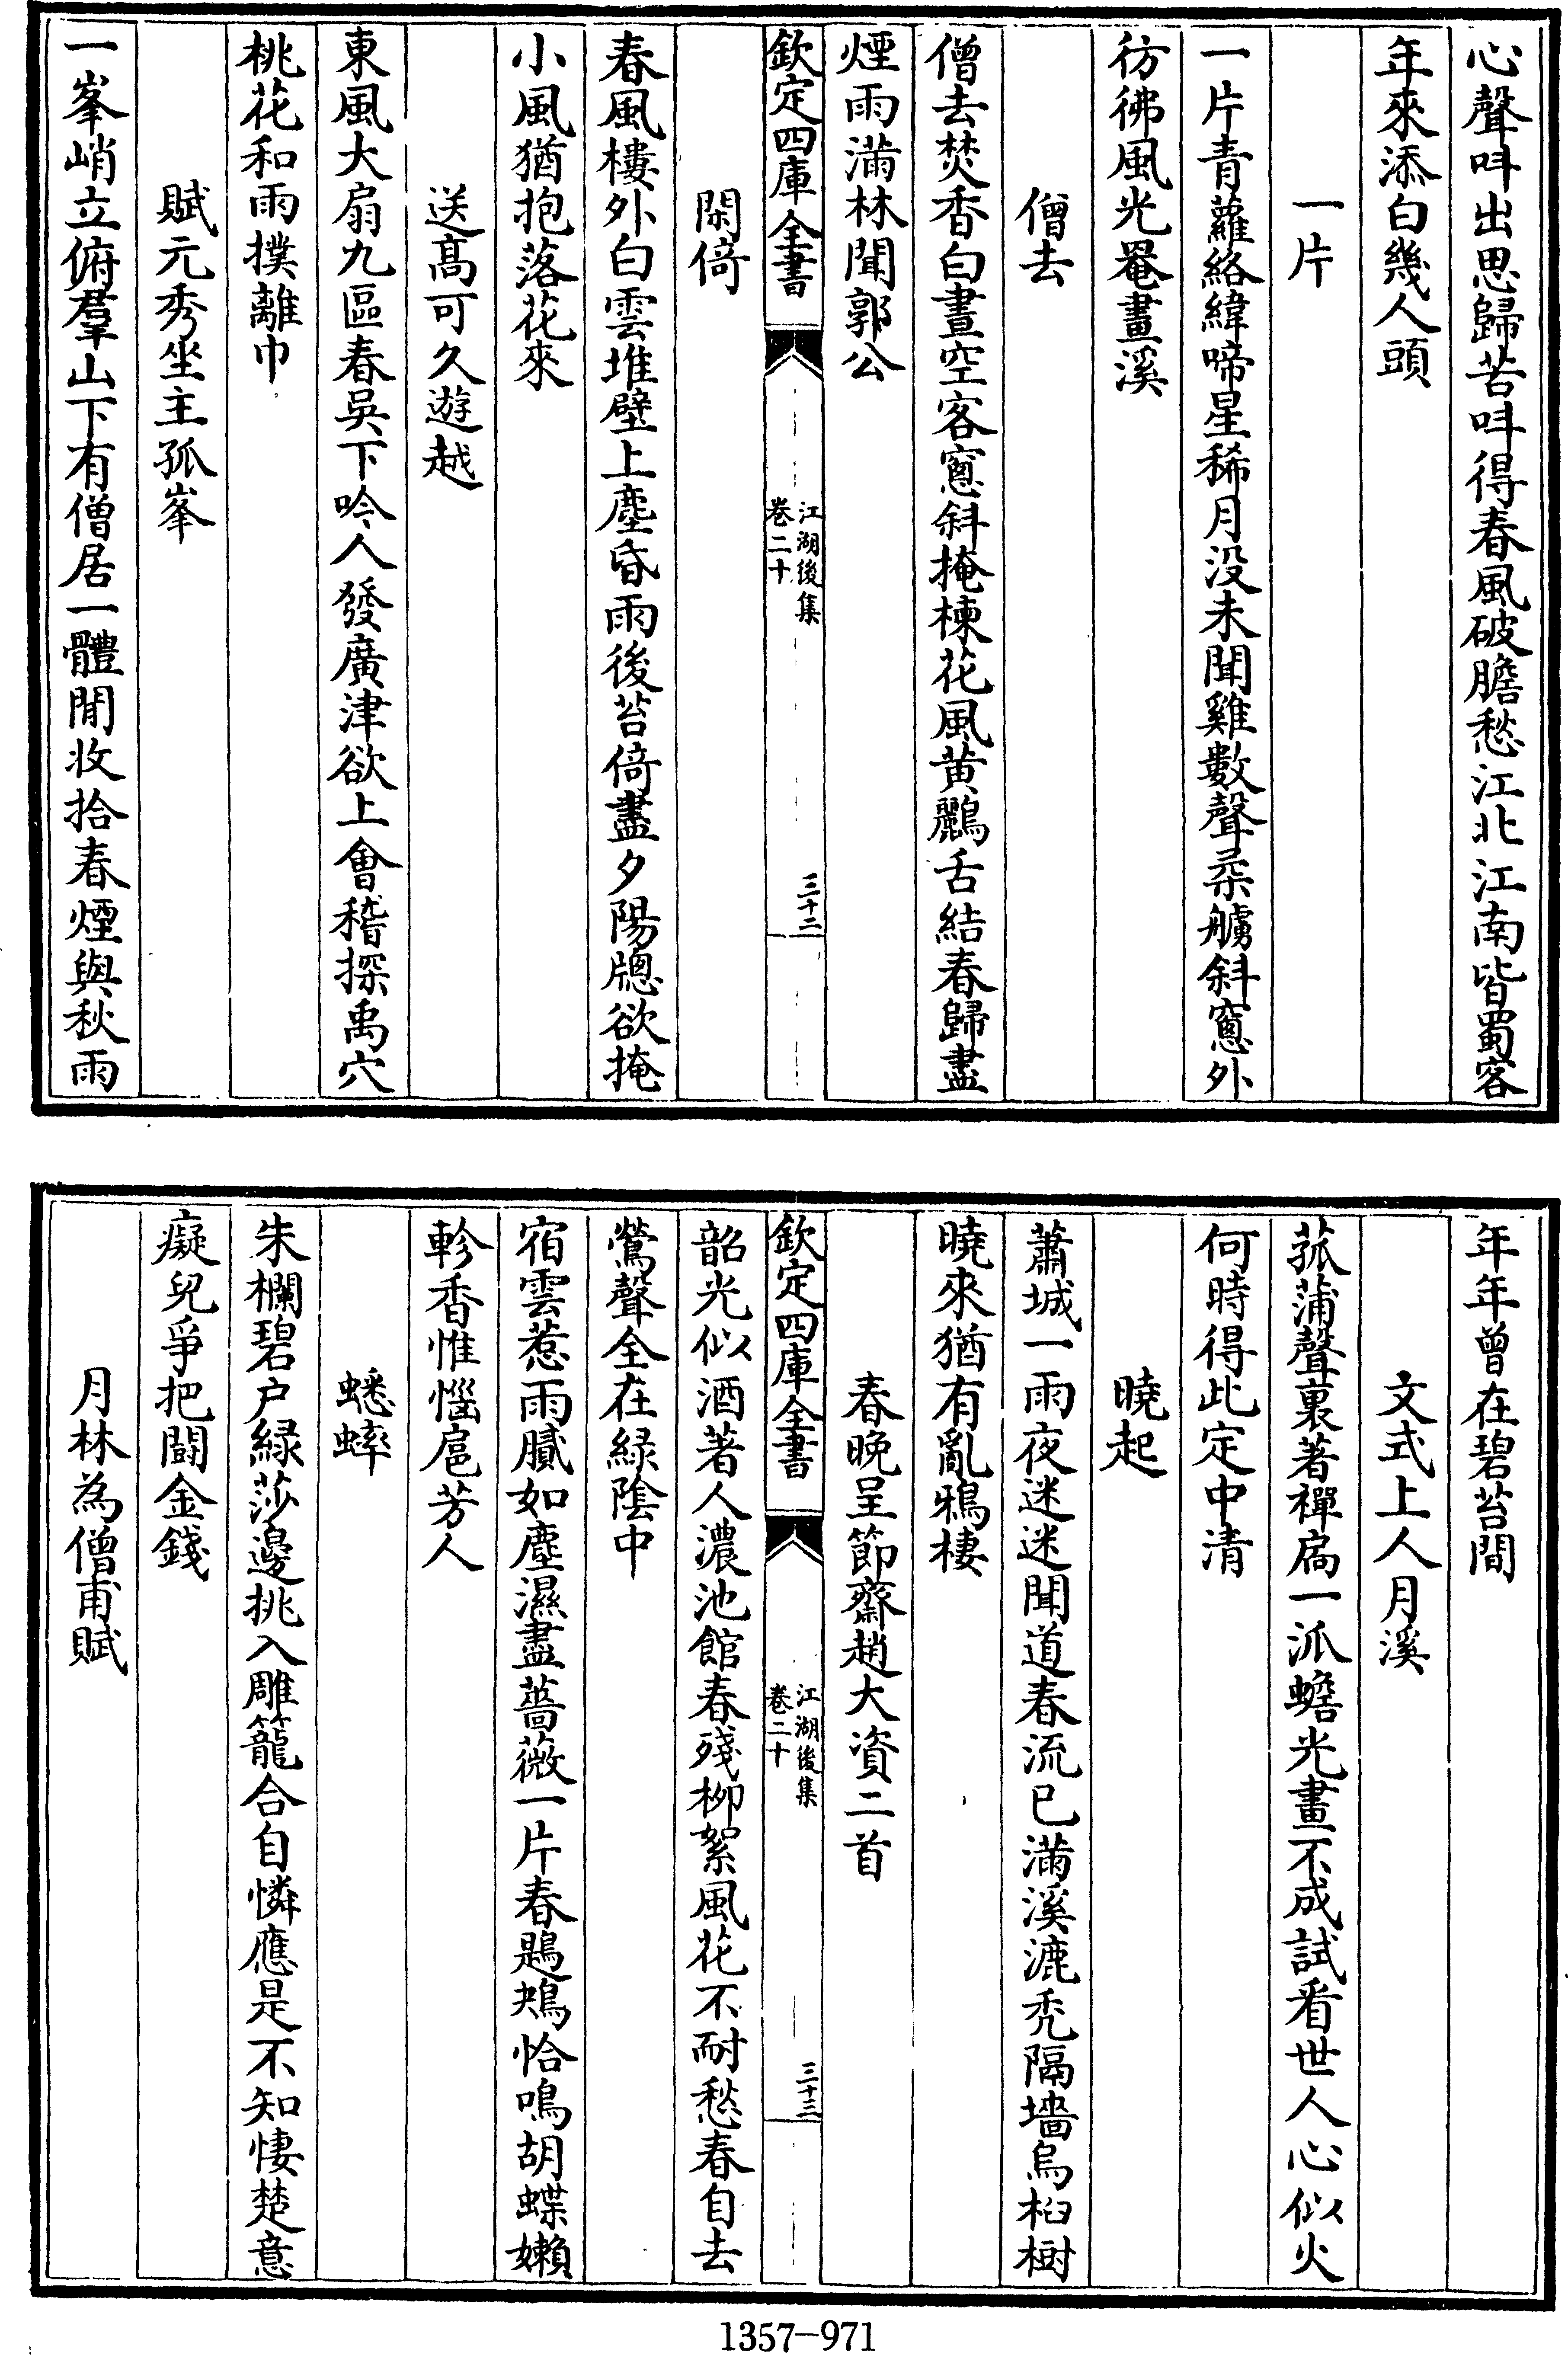 心聲呌出思歸苦呌得春風破膽愁江北江南皆蜀客
年來添白幾人頭
一片
一片青蘿絡緯啼星稀月没未聞雞數聲柔艣斜窻外
彷彿風光罨畫溪
僧去
僧去焚香白晝空客窻斜掩楝花風黄鸝舌結春歸盡
煙雨滿林聞郭公
欽定四庫全書
江湖後集
卷二十
三十二
閑倚
春風樓外白雲堆壁上塵昏雨後苔倚盡夕陽牕欲掩
小風猶抱落花來
送髙可久遊越
東風大扇九區春吳下吟人發廣津欲上會稽探禹穴
桃花和雨撲離巾
賦元秀坐主孤峯
一峯峭立俯羣山下有僧居一體閒收拾春煙與秋雨
年年曽在碧苔間
文式上人月溪
菰蒲聲裏著禪扃一派蟾光畫不成試看世人心似火
何時得此定中清
曉起
蕭城一雨夜迷迷聞道春流已滿溪漉秃隔墻烏桕樹
曉來猶有亂鴉棲
春晚呈節齋趙大資二首
欽定四庫全書
江湖後集
卷二十
三十三
韶光似酒著人濃池館春殘柳絮風花不耐愁春自去
鶯聲全在緑隂中
宿雲惹雨膩如塵濕盡薔薇一片春鶗鴂恰鳴胡蝶嬾
軫香惟惱扈芳人
蟋蟀
朱欄碧户緑莎邊挑入雕籠合自憐應是不知悽楚意
癡兒爭把鬭金錢
月林為僧甫賦
1357-971